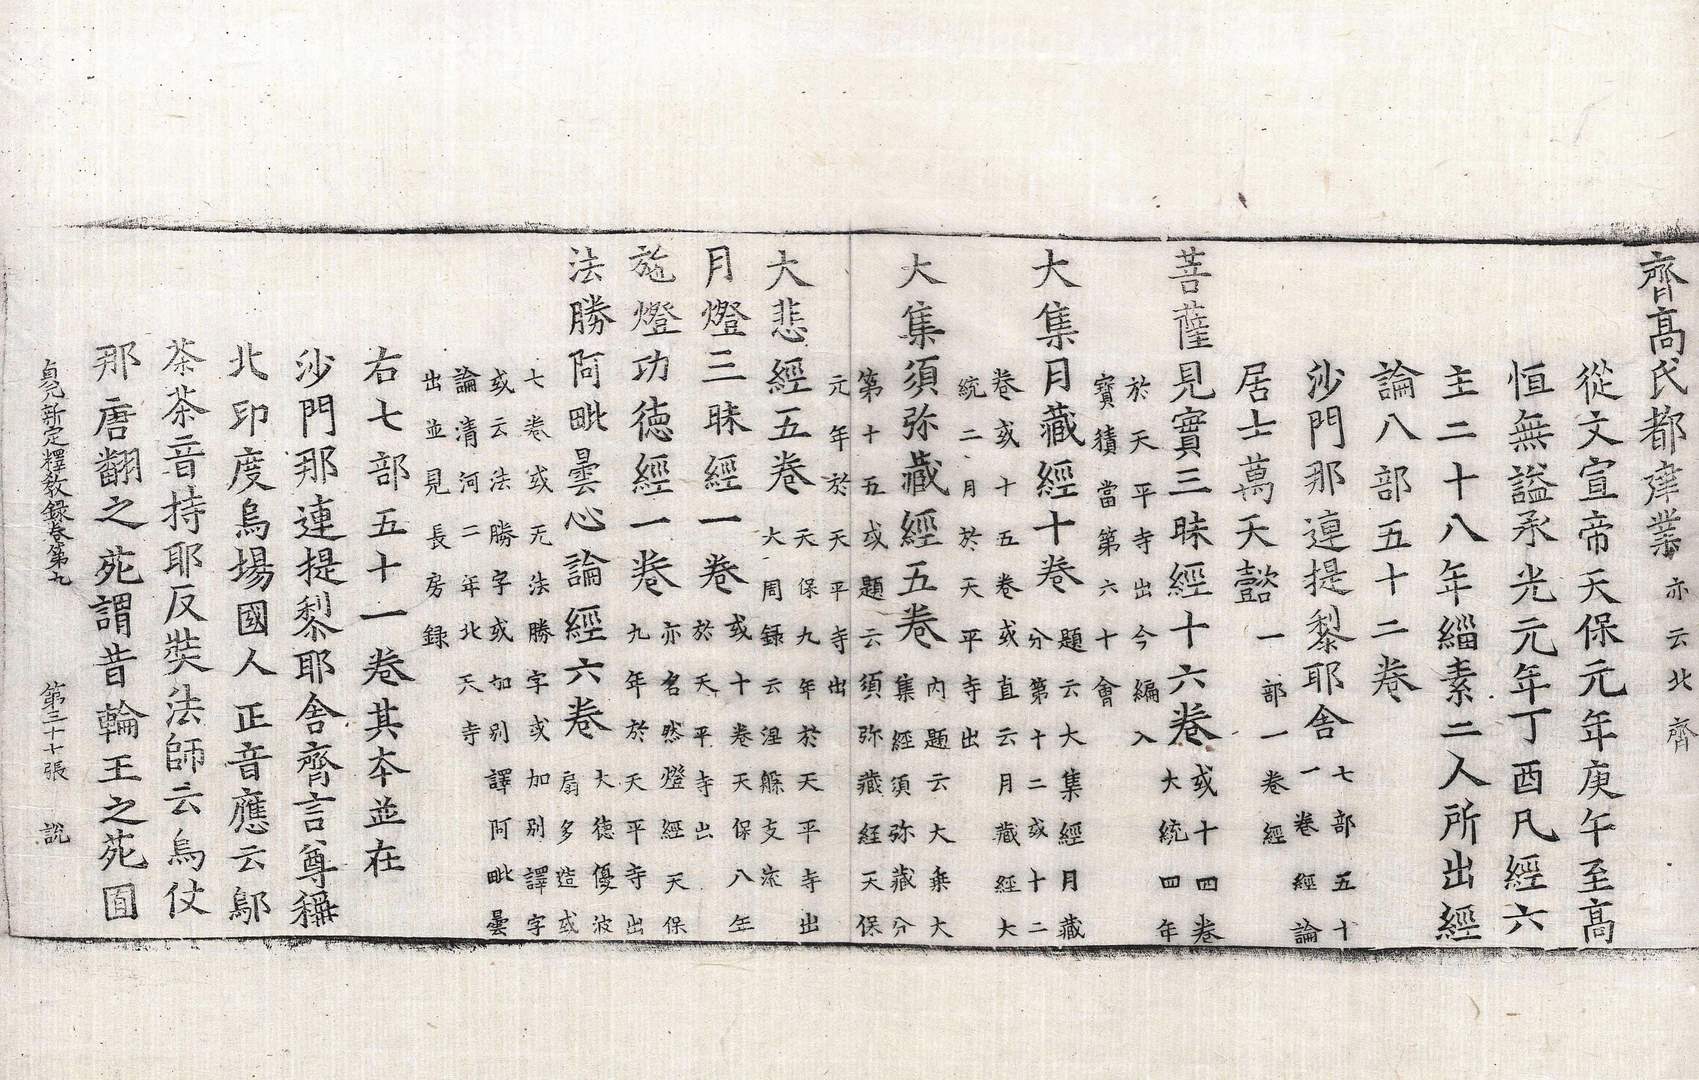 齊高氏都鄴業亦云北齊
從文宣帝天保元年庚午至高
恒無謚承光元年丁酉凡經六
主二十八年緇素二人所出經
論八部五十二卷
沙門那連提黎耶舍七部五十
一卷經論
居士萬天懿一部一卷經
菩薩見實三昧經十六卷或十四卷
大統四年
於天平寺出今編入
寶積當第六十會
大集月藏經十卷題云大集經月藏
分第十二或十二
卷或十五卷或直云月藏經大
統二月於天平寺出
大集須弥藏經五卷內題云大乘大
集經須弥藏分
第十五或題云須弥藏経天保
元年於天平寺出
大悲經五卷天保九年於天平寺出
大周録云涅槃支流
月燈三昧經一卷或十卷天保八年
於天平寺出
施燈功德經一卷亦名然燈經天保
九年於天平寺出
法勝阿毗曇心論經六卷大德優波
扇多造或
七卷或无法勝字或加别譯字
或云法勝字或加别譯阿毗曇
論清河二年北天寺
出並見長房録
右七部五十一卷其本並在
沙門那連提黎耶舍齊言尊稱
北印度烏場國人正音應云鄔
荼荼音持耶反奘法師云烏仗
那唐翻之苑謂昔輪王之苑囿
貞元新定釋教錄卷第九 第三十七張 說